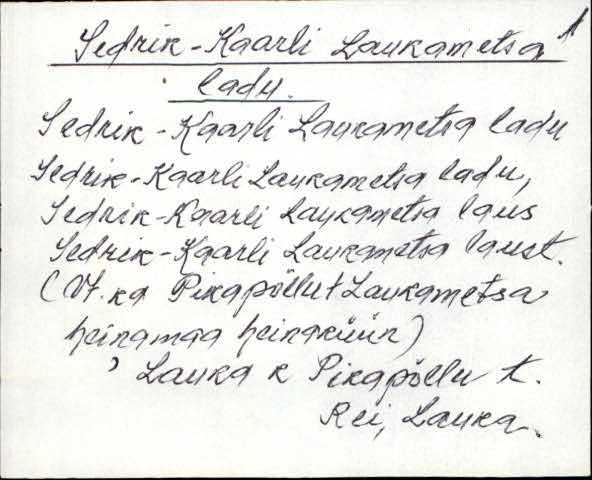 Sedrik-Kaarli Laukametsa 1
ladu.
Sedrik-Kaarli Laukametsa ladu
Sedrik-Kaarli Laukametsa ladu,
Sedrik-Kaarli Laukametsa laus
Sedrik-Kaarli Laukametsa laust.
(Vt. ka Pikapõllu t Laukametsa
heinamaa heinaküün)
Lauka k Pikapõllu t.
Rei, Lauka.